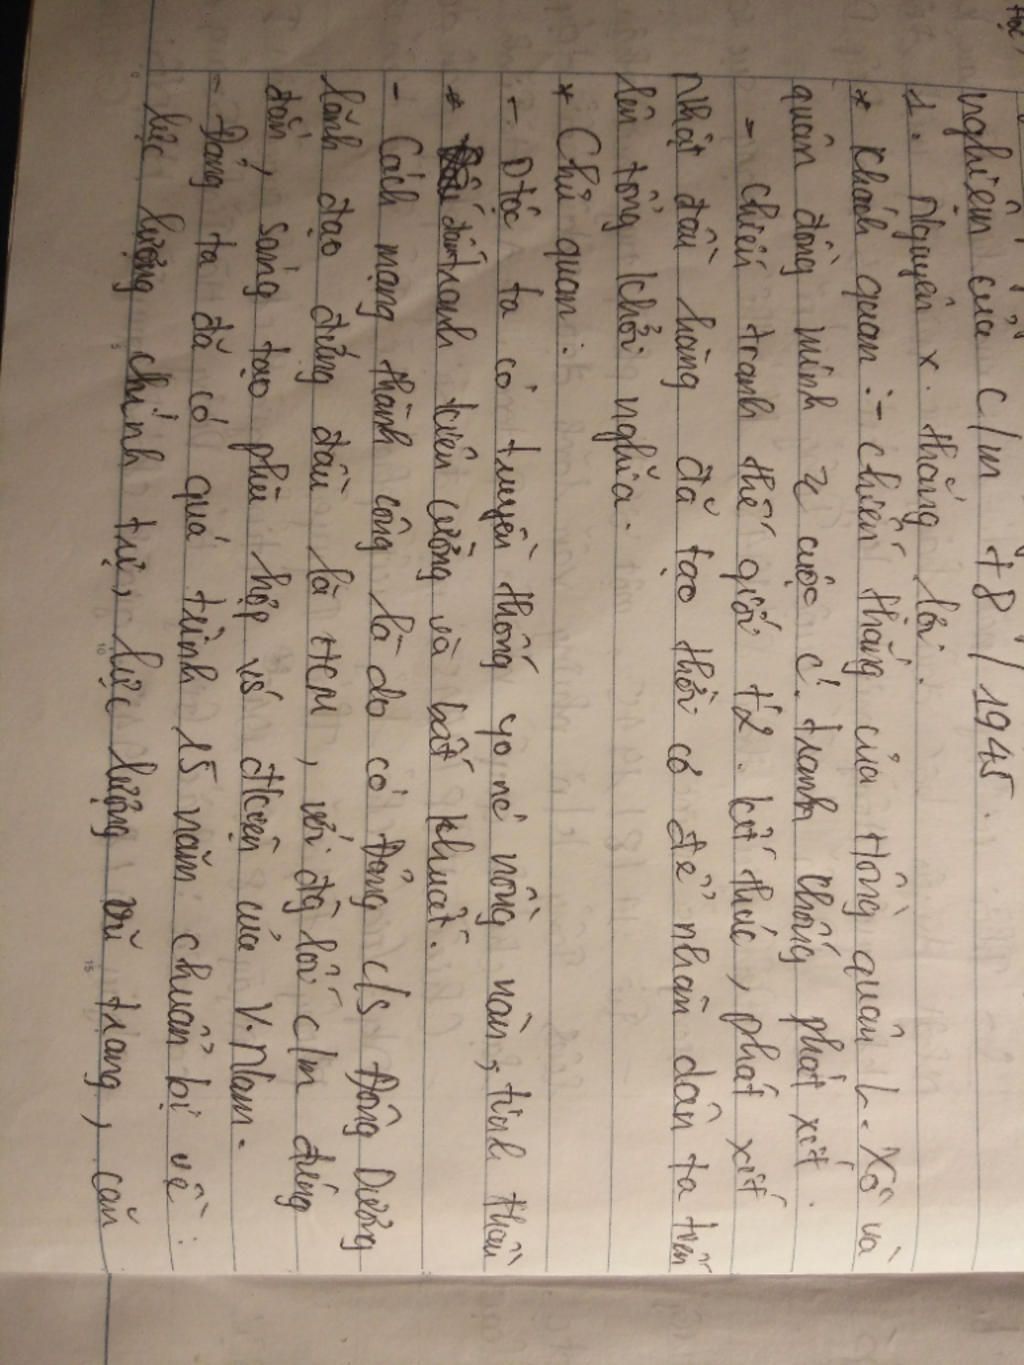 nghiệm của c/m t8/1945.
1. Nguyên x. thắng lợi.
* Khách quan: - chiến thắng của Hồng quân L. Xô và
quân đồng minh cuộc c. tranh chống phát xít.
- chiến tranh thế giới t2. kết thúc, phát xít
Nhật đầu hàng đã tạo thời cơ để nhân dân ta tiến
lên tổng khởi nghĩa.
* Chủ quan:
- Dtộc ta có truyền thống yo nc nồng nàn, tinh thần
đấu tranh kiên cường và bất khuất.
- Cách mạng thành công là do có Đảng c/s Đông Dương
lãnh đạo đứng đầu là HCM, với đg lối c/m đúng
đắn, sáng tạo phù hợp vs đkiện của V. Nam.
- Đảng ta đã có quá trình 15 năm chuẩn bị về:
lực lượng chính trị, lực lượng vũ trang, căn